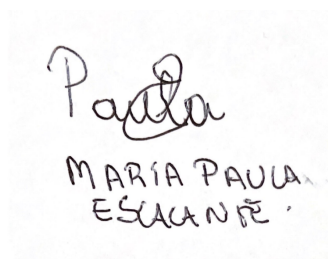 Paula
MARÍA PAULA
ESCALANTE.